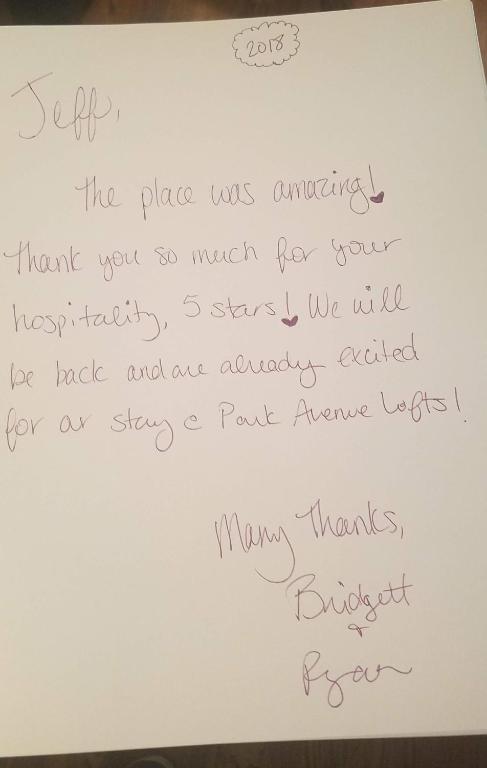 2018
Jeff,
The place was amazing!
Thank you so much for your
hospitality, 5 stars! We will
be back and are already excited
for ar stay @ Park Avenue Lofts!
Many Thanks,
Bridgett
+
Ryan